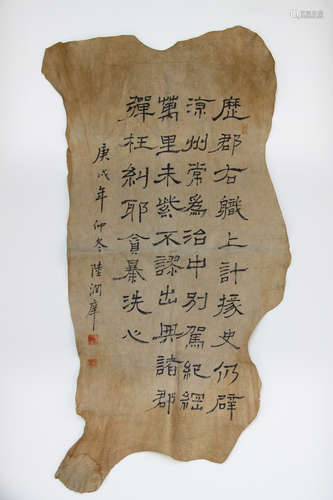 歷郡右職上計掾史仍辟
涼州常為治中別駕紀綱
萬里朱紫不謬出典諸郡
彈枉糾邪貪暴洗心
庚戌年仲冬 陸潤庠